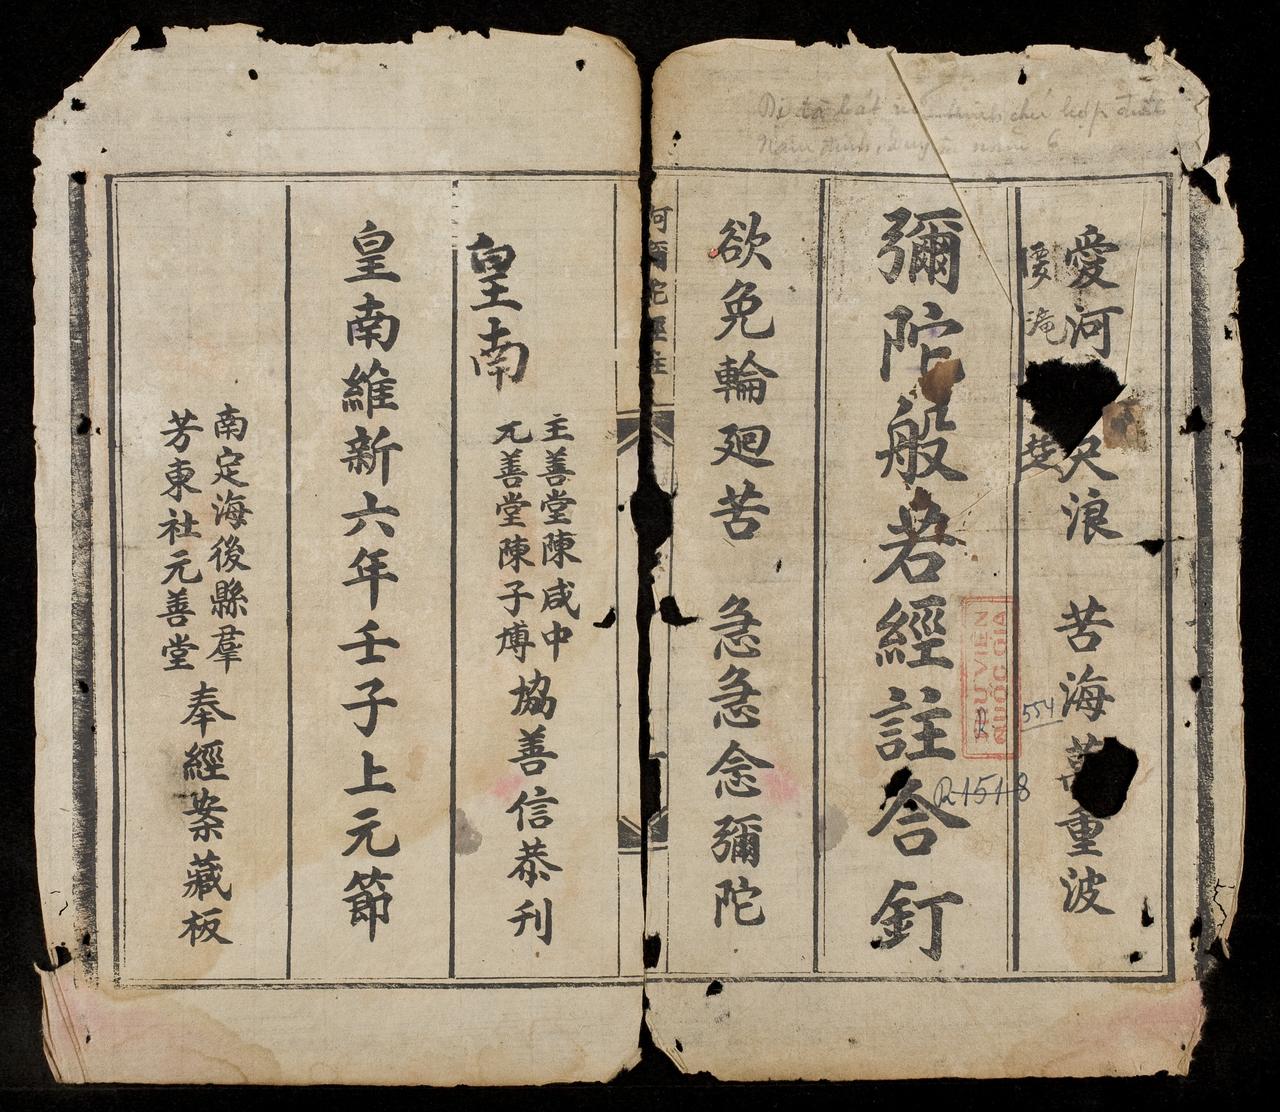 愛河 浪 苦海萬重波
彌陀般若經註合釘
欲免輪廻苦 急急念彌陀
阿彌陀經註
皇南
主善堂陳咸中
元善堂陳子博
協善信恭刊
皇南維新六年壬子上元節
南定海後縣羣
芳東社元善堂
奉經案藏板
THƯ VIỆN
QUỐC GIA
R
554
R1518